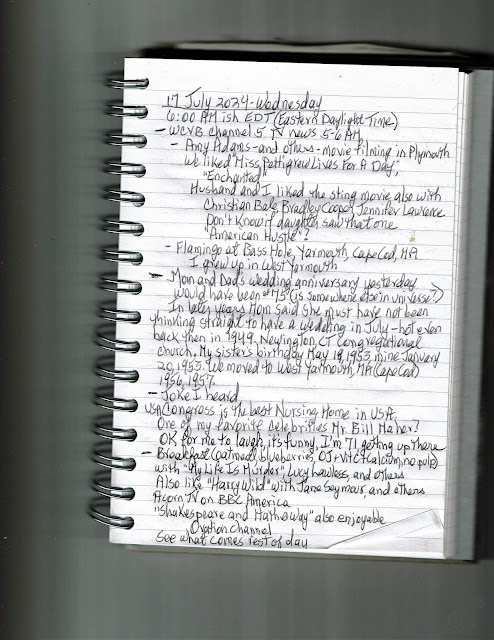 17 July 2024-Wednesday
6:00 AM ish EDT (Eastern Daylight Time)
- WCVB Channel 5 TV news 5-6 AM
- Amy Adams-and others-movie filming in Plymouth
We liked "Miss Pettigrew Lives For A Day",
"Enchanted"
Husband and I liked the sting movie also with
Christian Bale, Bradley Cooper, Jennifer Lawrence
Don't know if daughter saw that one
"American Hustle"?
- Flamingo at Bass Hole, Yarmouth, Cape Cod, MA
I grew up in West Yarmouth
- Mom and Dad's wedding anniversary yesterday
would have been #75 (is somewhere else in universe?)
In later years Mom said she must have not been
thinking straight to have a wedding in July-hot even
back then in 1949. Newington, CT Congregational
Church. My sister's birthday May 1953 mine January
20, 1953. We moved to West Yarmouth, MA (Cape Cod)
1956, 1957.
- Joke I heard
USA Congress is the best Nursing Home in USA.
One of my favorite celebrities Mr. Bill Maher?
OK for me to laugh, it's funny, I'm 71 getting up there
- Breakfast (oatmeal, blueberries, OJ + Vit C + Calcium, no pulp)
with "My Life Is Murder", Lucy Lawless, and others
Also like "Harry Wild" with Jane Seymour, and others
Acorn TV on BBC America
"Shakespeare and Hathaway" also enjoyable
Ovation Channel
See what comes rest of day